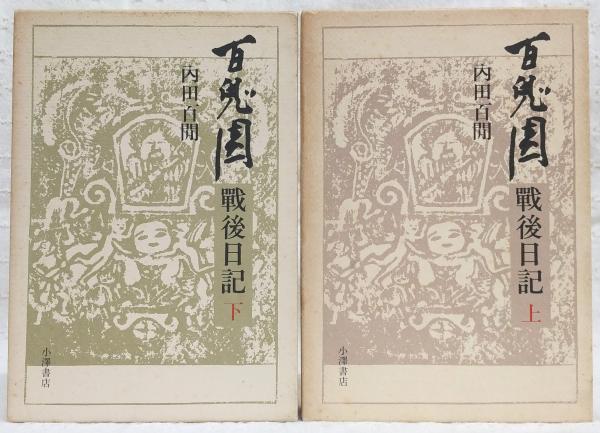 百鬼園
戰後日記
下
内田百閒
小澤書店
百鬼園
戰後日記
上
内田百閒
小澤書店